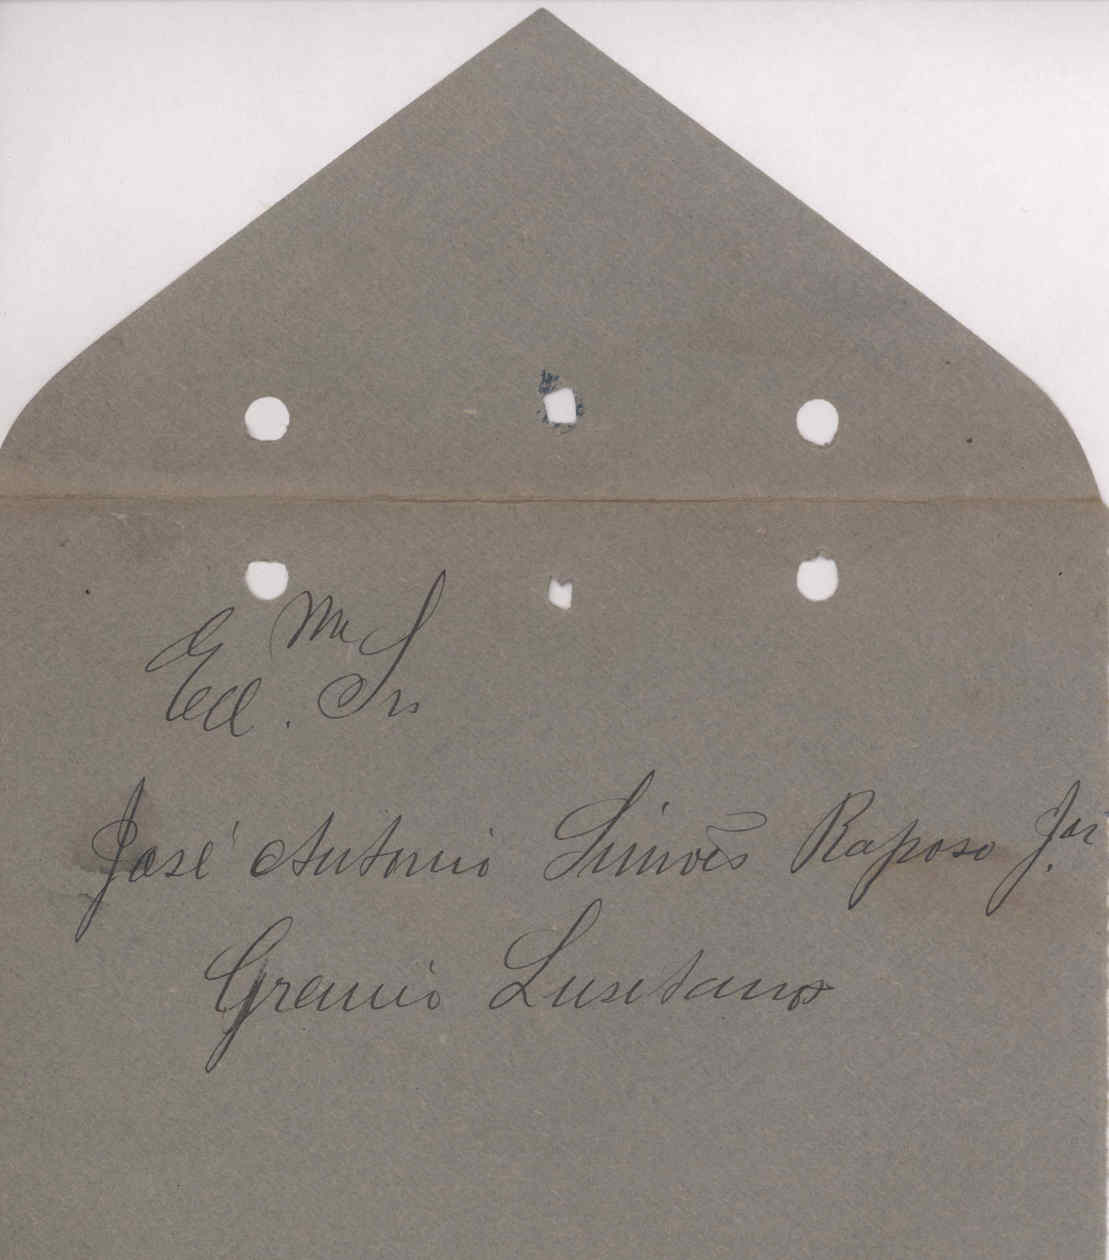 Ex.mo Sr
José Antonio Simões Raposo Jor
Gremio Lusitano